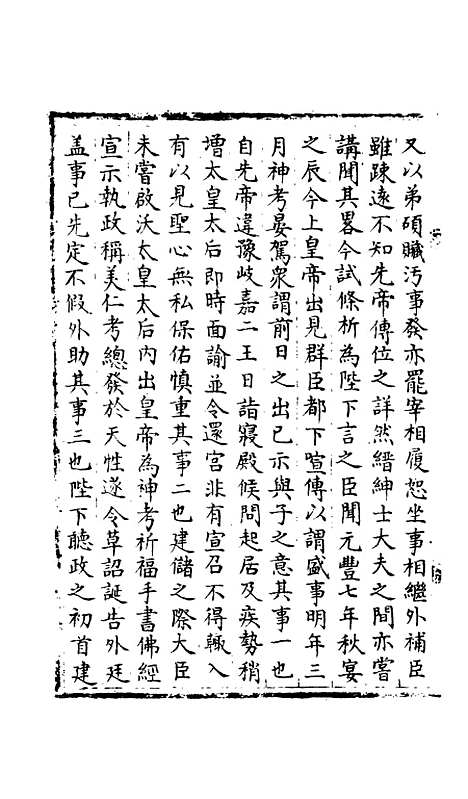 又以弟碩贓汚事發亦罷宰相履恕坐事相繼外補臣
雖踈逺不知先帝傳位之詳然縉紳士大夫之間亦嘗
講聞其畧今試條析為陛下言之臣聞元豐七年秋宴
之辰今上皇帝出見群臣都下喧傳以謂盛事明年三
月神考晏駕衆謂前日之出已示與子之意其事一也
自先帝違豫岐嘉二王日詣寢殿候問起居及疾勢稍
増太皇太后即時面諭並令還宮非有宣召不得輙入
有以見聖心無私保佑慎重其事二也建儲之際大臣
未嘗啟沃太皇太后内出皇帝為神考祈福手書佛經
宣示執政稱美仁考總發於天性遂令草詔誕告外廷
盖事已先定不假外助其事三也陛下聽政之初首建